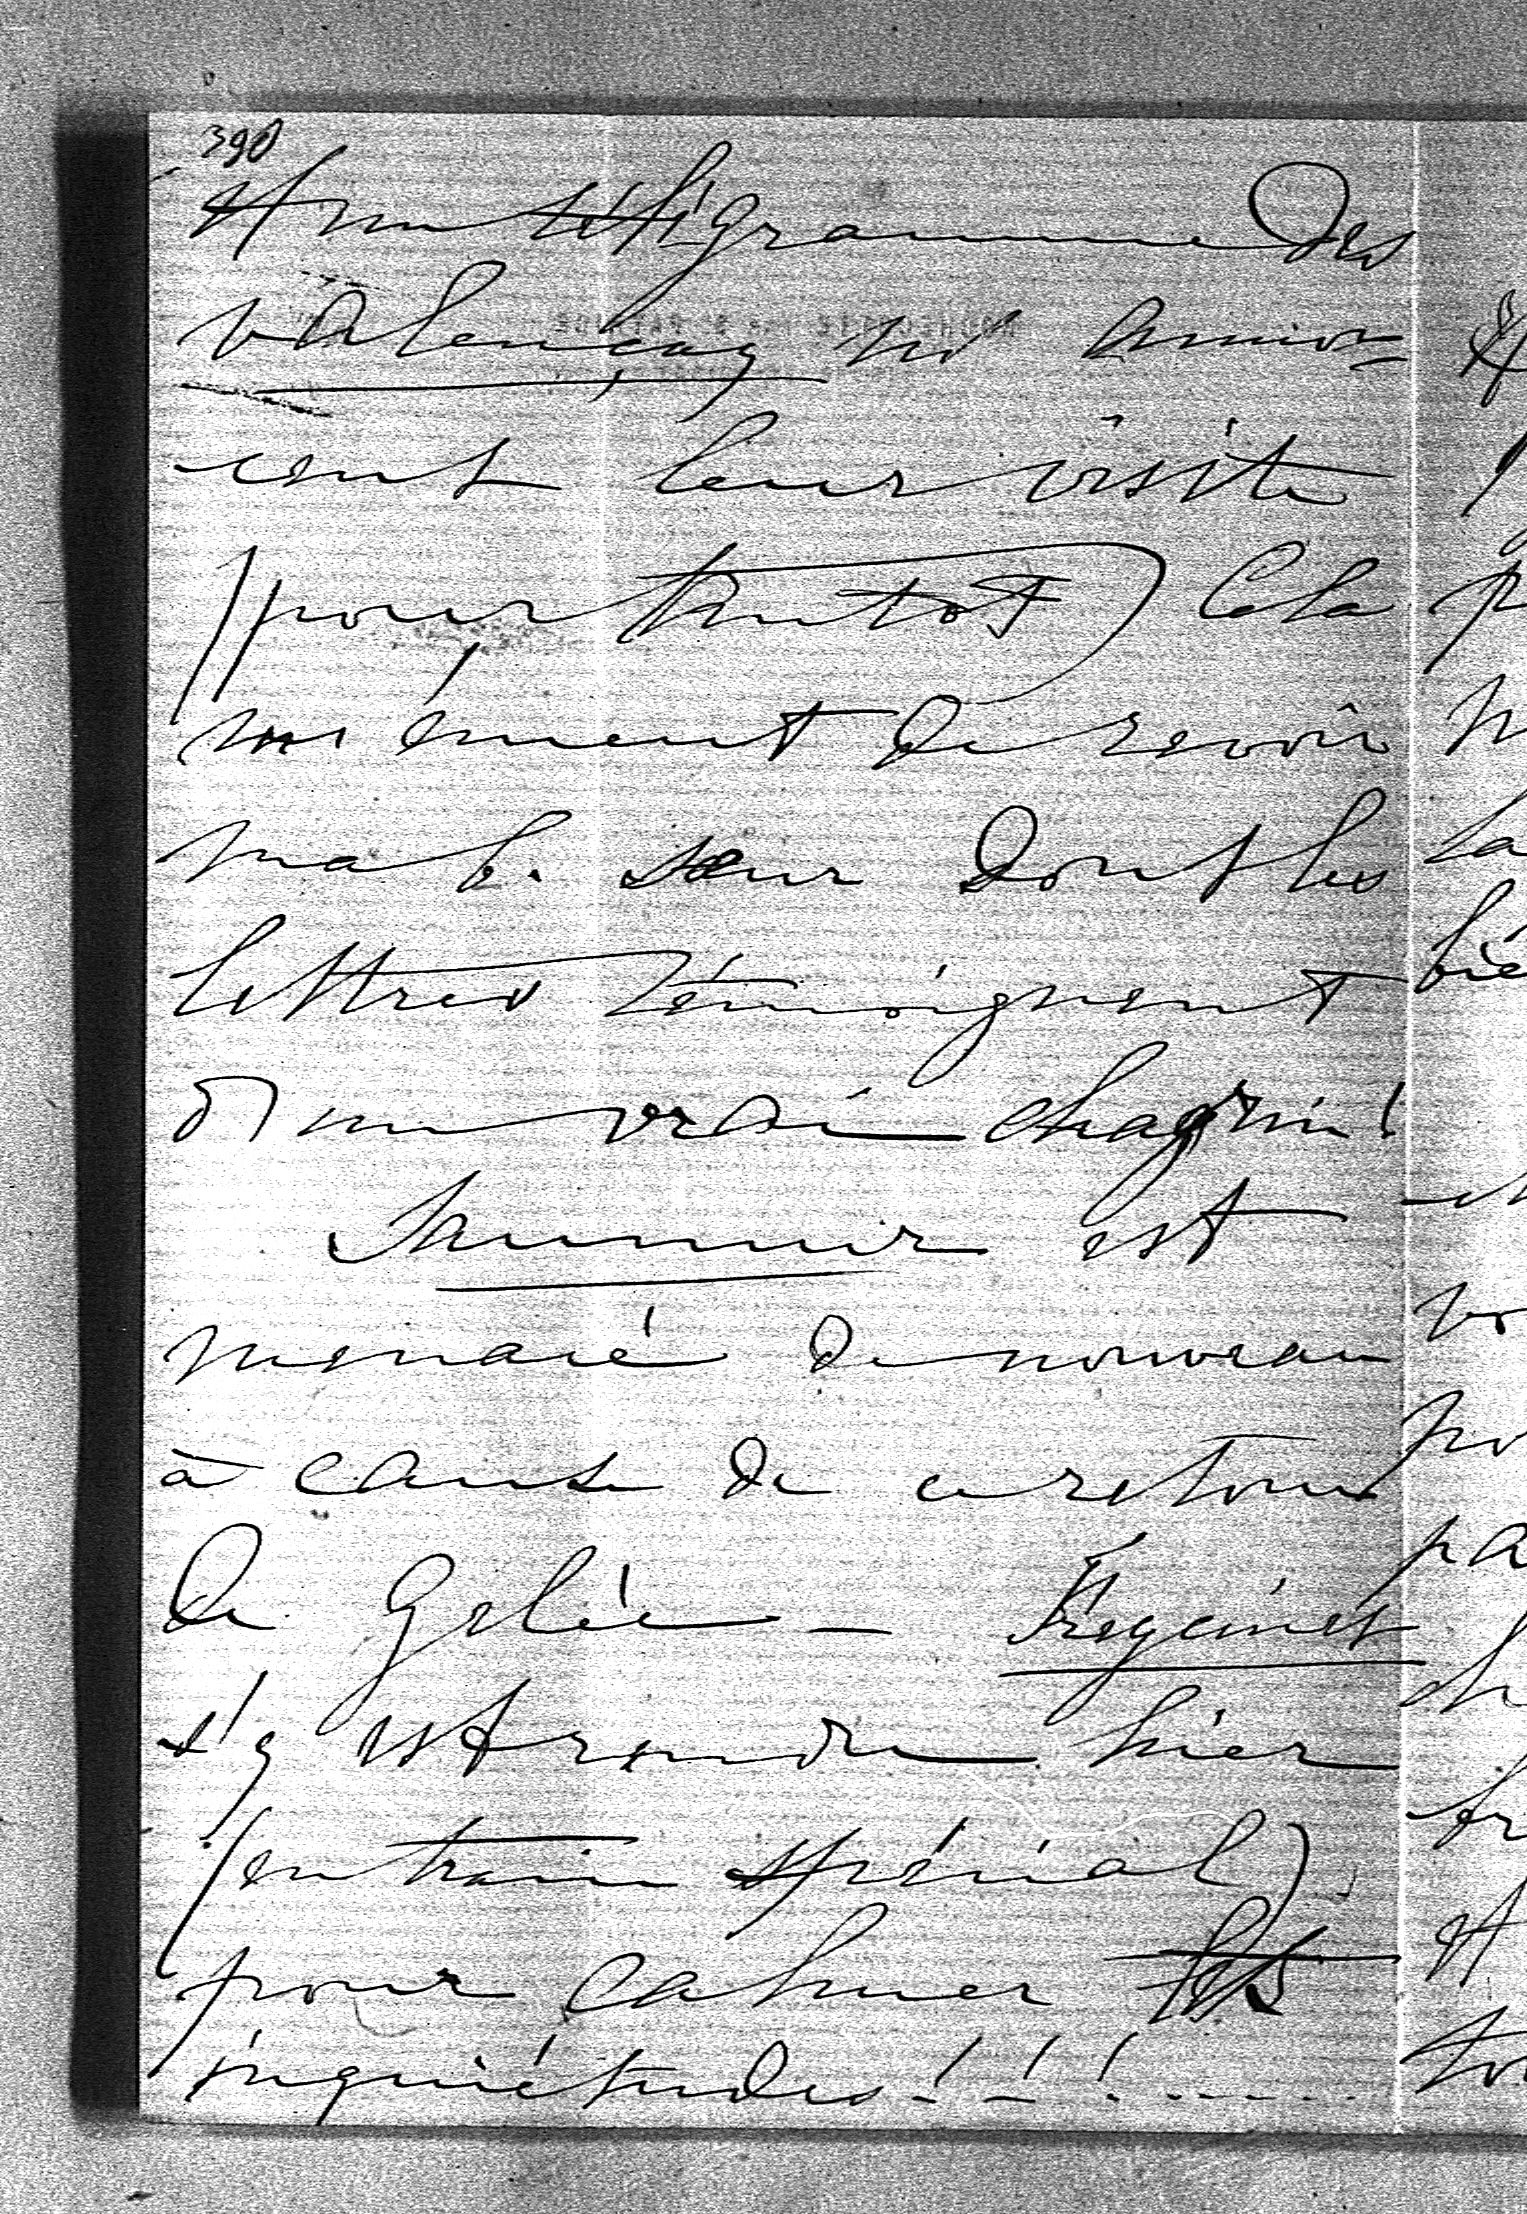 390
Un télégramme des
Valençay m' annon=
cent leur visite
(pour tantôt) Cela
m' émeut de revoir
ma b. sœur dont les
lettres témoignent
d'un vrai chagrin!
est
menacé de nouveau
à cause de ce retour
de Gelée — Freycinet
s'y est rendu hier
(en train spécial)
pour calmer les
inquiétudes! ! ! .....